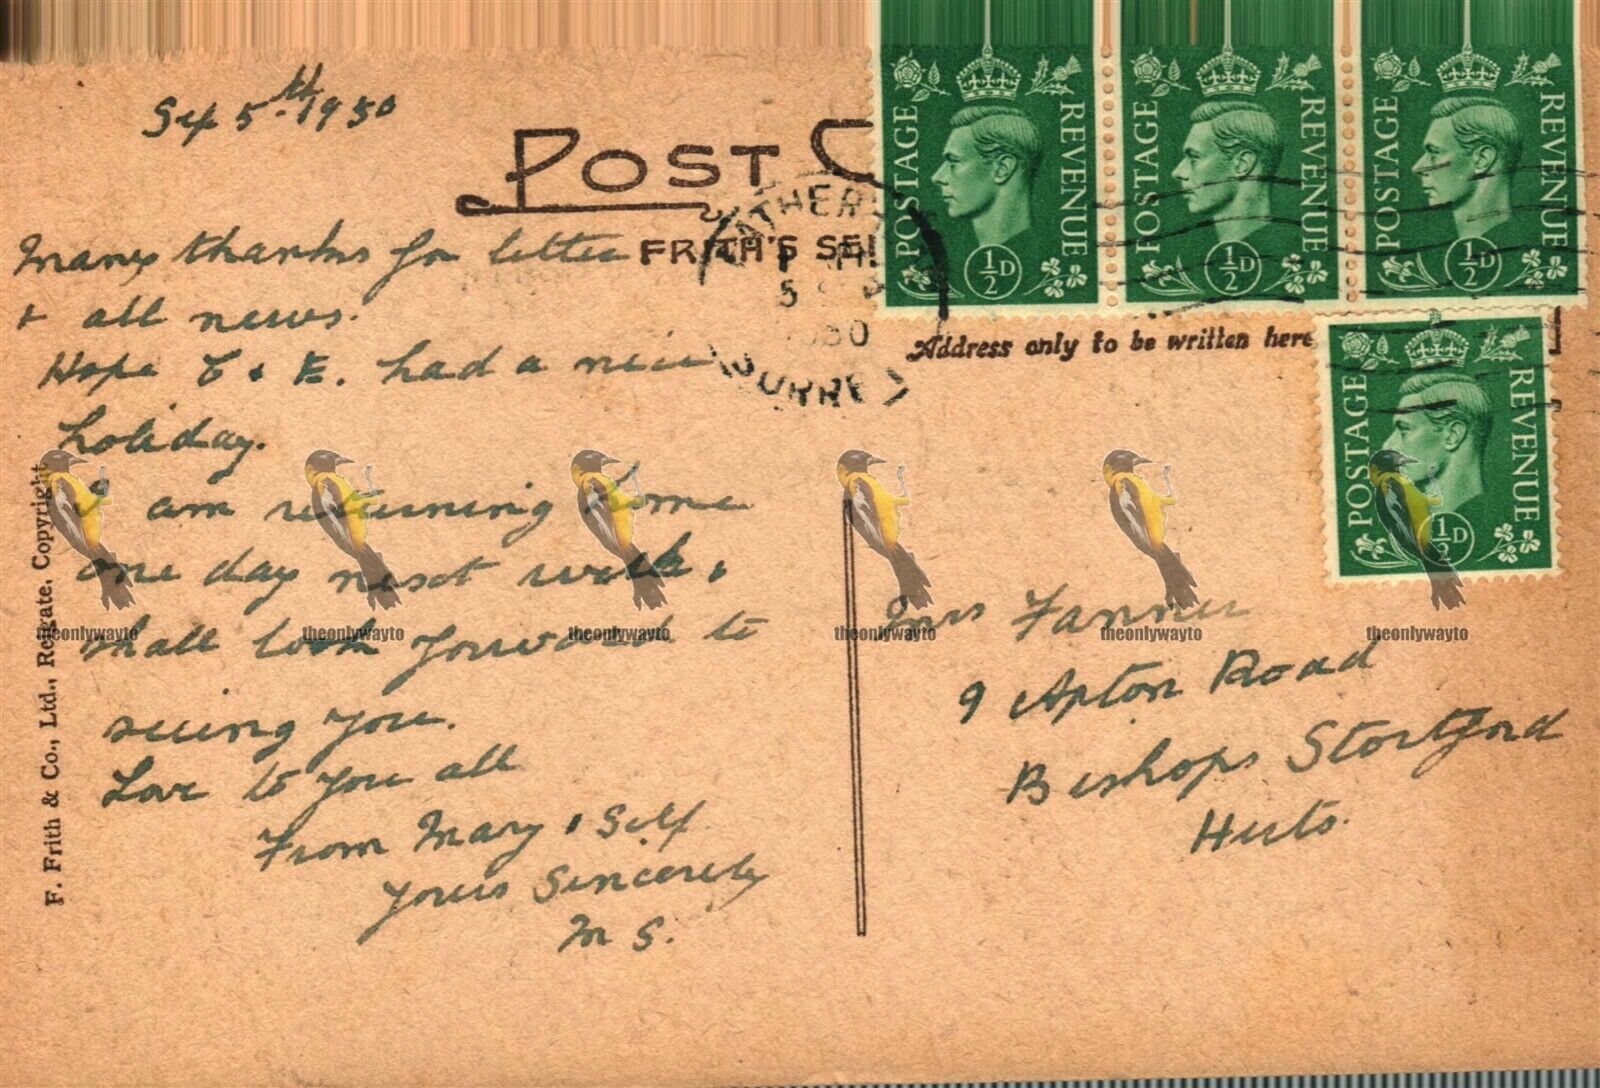 Sep 5th 1950
POST C
FRITH'S SE
Many thanks for letter
& all news.
Hope & E. had a nice
holiday.
I am returning home
one day next week,
shall look forward to
seeing you.
Love to you all
From Mary & Self
Yours Sincerely
M S.
F. Frith & Co., Ltd., Reigate. Copyright
POSTAGE REVENUE ½D
POSTAGE REVENUE ½D
POSTAGE REVENUE ½D
POSTAGE REVENUE ½D
ATHER
5
SURREY
Address only to be written here
Mrs Fanner
9 Apton Road
Bishops Stortford
Herts.
theonlywayto theonlywayto theonlywayto theonlywayto theonlywayto theonlywayto